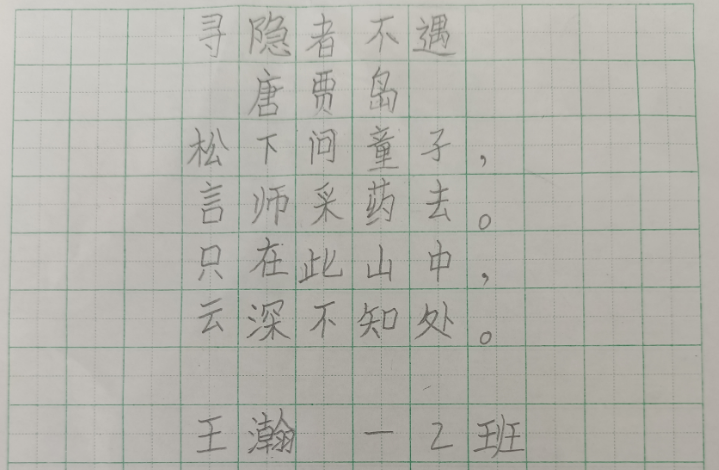 寻隐者不遇
唐贾岛
松下问童子，
言师采药去。
只在此山中，
云深不知处。
王瀚 一2班